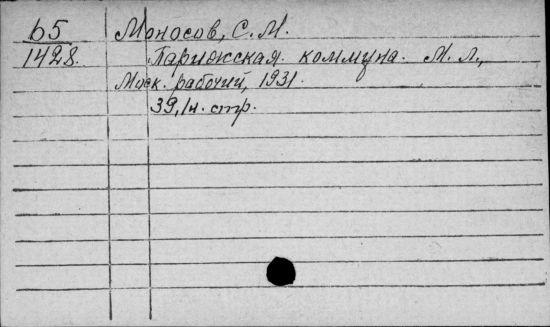 65 Моносов, С. М.
1428. Парижская коммуна. М. Л.,
Моск. рабочий, 1931.
39, 1н. стр.